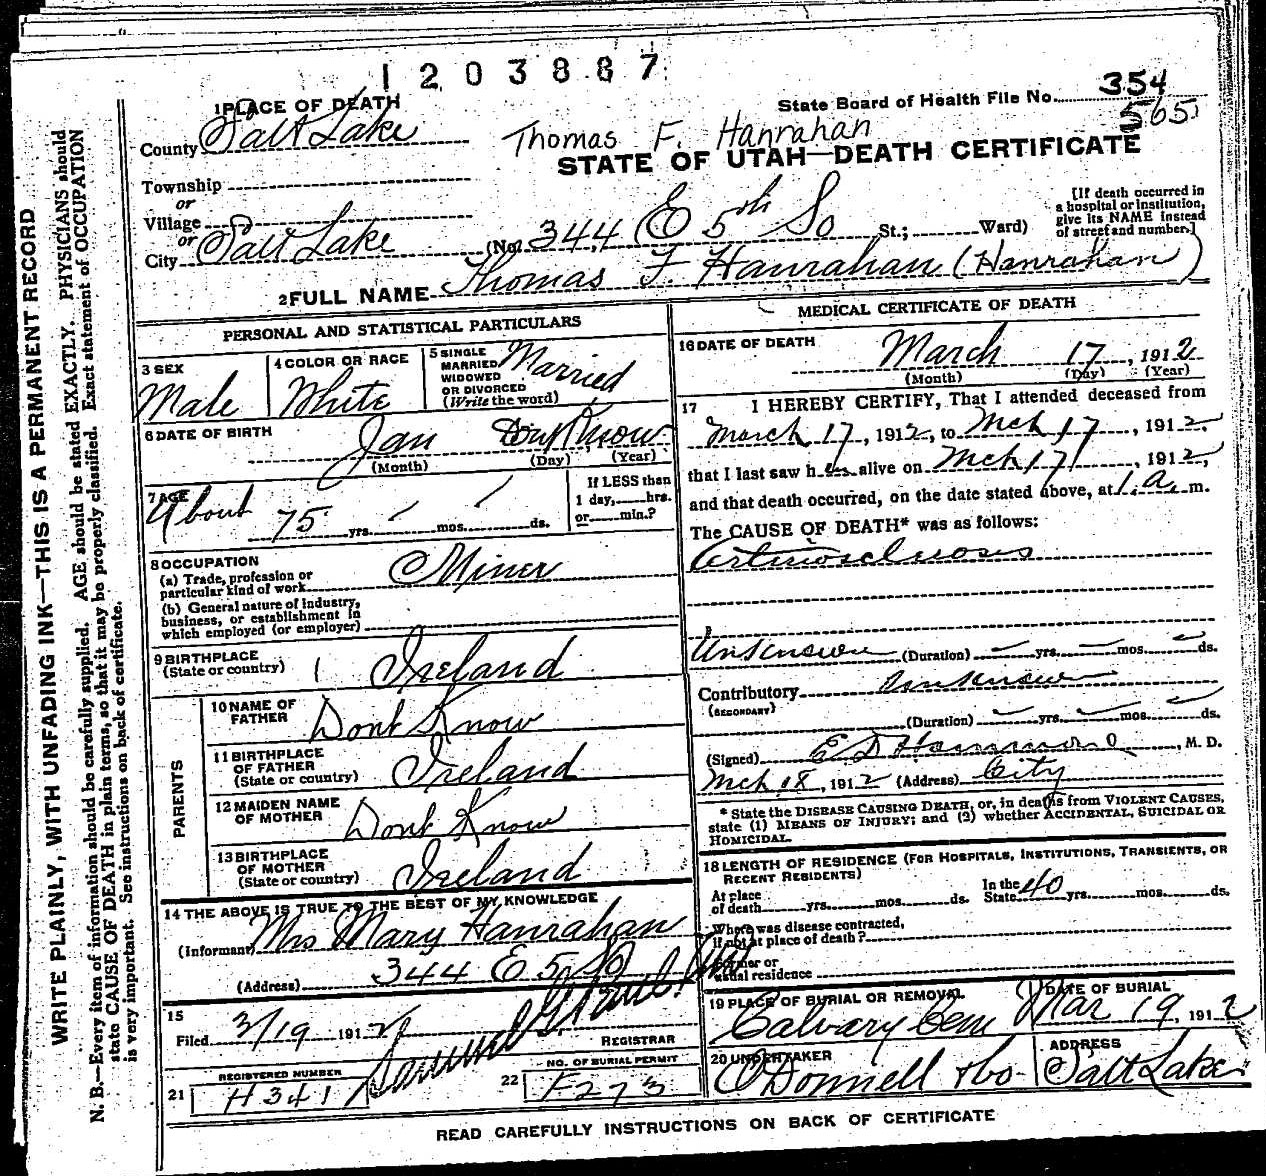 1203887
State Board of Health File No. 354
565
1 PLACE OF DEATH
County Salt Lake
Thomas F. Hanrahan
STATE OF UTAH—DEATH CERTIFICATE
Township
or
Village
or
City Salt Lake (No. 344 E 5th So St.; Ward)
[If death occurred in
a hospital or institution,
give its NAME instead
of street and number.]
2 FULL NAME Thomas F. Hanrahan (Hanrahan)
PERSONAL AND STATISTICAL PARTICULARS
3 SEX
Male
4 COLOR OR RACE
White
5 SINGLE
MARRIED
WIDOWED
OR DIVORCED
(Write the word)
Married
6 DATE OF BIRTH
Jan Dont Know
(Month) (Day) (Year)
7 AGE
About 75 yrs. mos. ds.
If LESS than
1 day, hrs.
or min.?
8 OCCUPATION
(a) Trade, profession or
particular kind of work Miner
(b) General nature of industry,
business, or establishment in
which employed (or employer)
9 BIRTHPLACE
(State or country) Ireland
PARENTS
10 NAME OF
FATHER Dont Know
11 BIRTHPLACE
OF FATHER
(State or country) Ireland
12 MAIDEN NAME
OF MOTHER Dont Know
13 BIRTHPLACE
OF MOTHER
(State or country) Ireland
14 THE ABOVE IS TRUE TO THE BEST OF MY KNOWLEDGE
(Informant) Mrs Mary Hanrahan
(Address) 344 E 5 So
15
Filed 3/19 1912
Samuel G. Paul
REGISTRAR
REGISTERED NUMBER
21 H341
NO. OF BURIAL PERMIT
22 F273
MEDICAL CERTIFICATE OF DEATH
16 DATE OF DEATH
March 17, 1912
(Month) (Day) (Year)
17 I HEREBY CERTIFY, That I attended deceased from
March 17, 1912, to Mch 17, 1912.
that I last saw h alive on Mch 17, 1912,
and that death occurred, on the date stated above, at 1. a. m.
The CAUSE OF DEATH* was as follows:
Arteriosclerosis
Unknown (Duration) yrs. mos. ds.
Contributory Unknown
(SECONDARY)
(Duration) yrs. mos. ds.
(Signed) E D Hammond, M. D.
Mch 18, 1912 (Address) City
* State the DISEASE CAUSING DEATH, or, in deaths from VIOLENT CAUSES,
state (1) MEANS OF INJURY; and (2) whether ACCIDENTAL, SUICIDAL OR
HOMICIDAL.
18 LENGTH OF RESIDENCE (FOR HOSPITALS, INSTITUTIONS, TRANSIENTS, OR
RECENT RESIDENTS)
At place
of death yrs. mos. ds.
In the
State 40 yrs. mos. ds.
Where was disease contracted,
if not at place of death?
Former or
usual residence
19 PLACE OF BURIAL OR REMOVAL
Calvary Cem
DATE OF BURIAL
Mar 19, 1912
20 UNDERTAKER
O'Donnell & Co-
ADDRESS
Salt Lake
READ CAREFULLY INSTRUCTIONS ON BACK OF CERTIFICATE
WRITE PLAINLY, WITH UNFADING INK—THIS IS A PERMANENT RECORD
N. B.—Every item of information should be carefully supplied. AGE should be stated EXACTLY. PHYSICIANS should
state CAUSE OF DEATH in plain terms, so that it may be properly classified. Exact statement of OCCUPATION
is very important. See instructions on back of certificate.